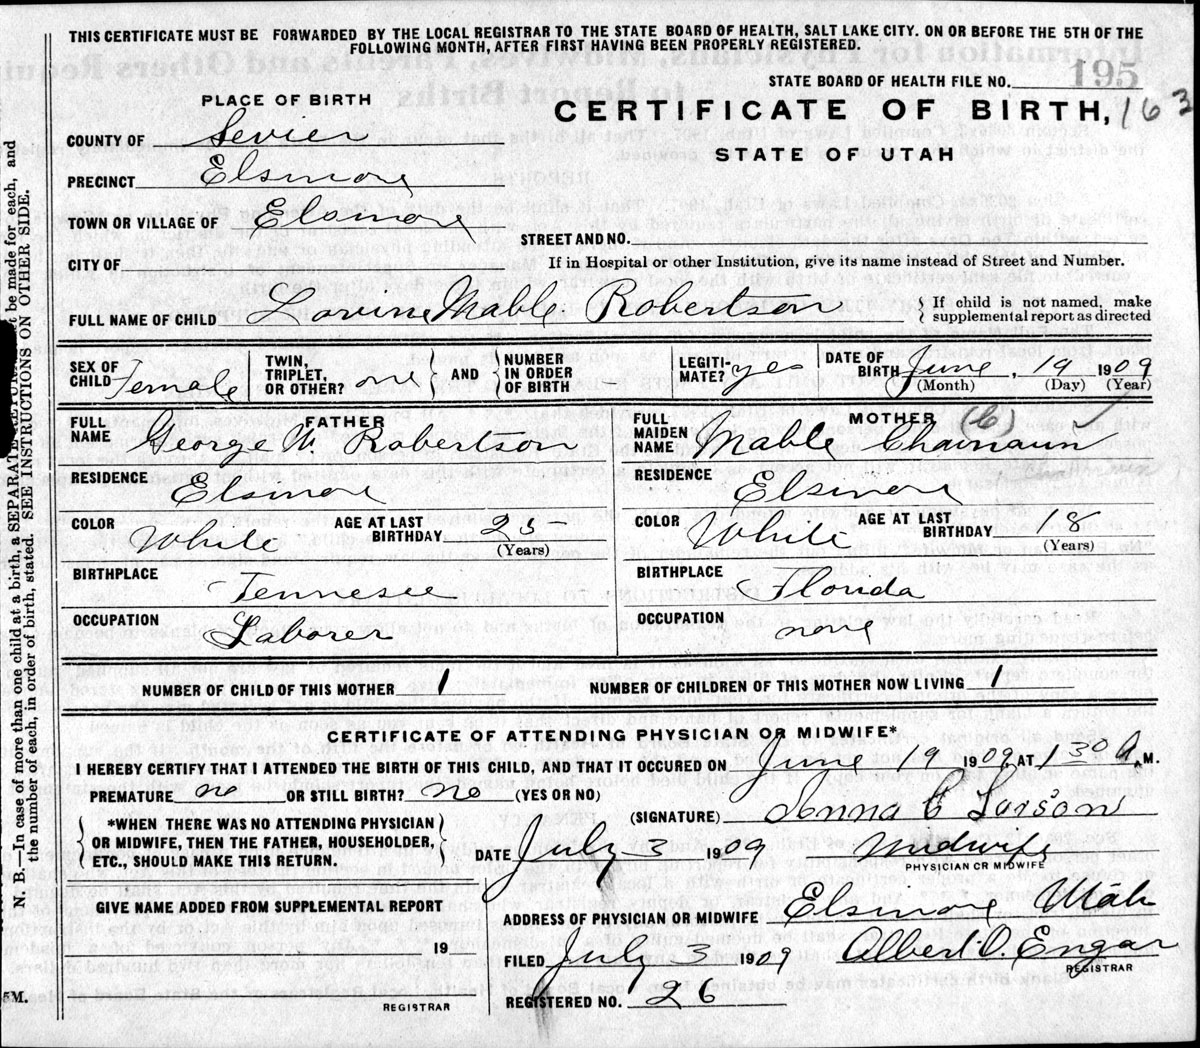 THIS CERTIFICATE MUST BE FORWARDED BY THE LOCAL REGISTRAR TO THE STATE BOARD OF HEALTH, SALT LAKE CITY. ON OR BEFORE THE 5TH OF THE
FOLLOWING MONTH, AFTER FIRST HAVING BEEN PROPERLY REGISTERED.
STATE BOARD OF HEALTH FILE NO. 195
PLACE OF BIRTH
CERTIFICATE OF BIRTH, 163
STATE OF UTAH
COUNTY OF Sevier
PRECINCT Elsinore
TOWN OR VILLAGE OF Elsinore
STREET AND NO.
CITY OF
If in Hospital or other Institution, give its name instead of Street and Number.
FULL NAME OF CHILD Lovine Mable Robertson
If child is not named, make
supplemental report as directed
SEX OF CHILD Female
TWIN, TRIPLET, OR OTHER? one
AND
NUMBER IN ORDER OF BIRTH
LEGITI- MATE? yes
DATE OF BIRTH June, 19 1909
(Month) (Day) (Year)
FATHER
FULL NAME George M Robertson
MOTHER (C)
FULL MAIDEN NAME Mable
RESIDENCE Elsinore
RESIDENCE Elsinore
COLOR White
AGE AT LAST BIRTHDAY 25
(Years)
COLOR White
AGE AT LAST BIRTHDAY 18
(Years)
BIRTHPLACE Tennesee
BIRTHPLACE Florida
OCCUPATION Laborer
OCCUPATION none
NUMBER OF CHILD OF THIS MOTHER 1
NUMBER OF CHILDREN OF THIS MOTHER NOW LIVING 1
CERTIFICATE OF ATTENDING PHYSICIAN OR MIDWIFE*
I HEREBY CERTIFY THAT I ATTENDED THE BIRTH OF THIS CHILD, AND THAT IT OCCURED ON June 19 1909 AT 130 A M.
PREMATURE no OR STILL BIRTH? no (YES OR NO)
(SIGNATURE) Larson
*WHEN THERE WAS NO ATTENDING PHYSICIAN
OR MIDWIFE, THEN THE FATHER, HOUSEHOLDER,
ETC., SHOULD MAKE THIS RETURN.
DATE July 3 1909 Midwife
PHYSICIAN OR MIDWIFE
GIVE NAME ADDED FROM SUPPLEMENTAL REPORT
ADDRESS OF PHYSICIAN OR MIDWIFE Elsinore Utah
19
FILED July 3 1909 Albert O. Engar
REGISTRAR
REGISTRAR
REGISTERED NO. 26
5M.
N. B.—In case of more than one child at a birth, a SEPARATE RETURN be made for each, and
the number of each, in order of birth, stated. SEE INSTRUCTIONS ON OTHER SIDE.